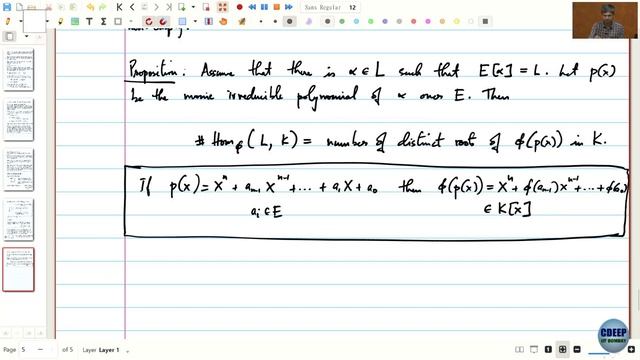 Sans Regular 12
non-empty.
Proposition: Assume that there is α ∈ L such that E[α] = L. Let p(x)
be the monic irreducible polynomial of α over E. Then
# Hom_ϕ (L, K) = number of distinct roots of ϕ(p(x)) in K.
If p(x) = X^n + a_{n-1} X^{n-1} + ... + a_1 X + a_0 then ϕ(p(x)) = X^n + ϕ(a_{n-1}) X^{n-1} + ... + ϕ(a_0)
a_i ∈ E ∈ K[x]
Page 5 of 5 Layer Layer 1
CDEEP
IIT BOMBAY